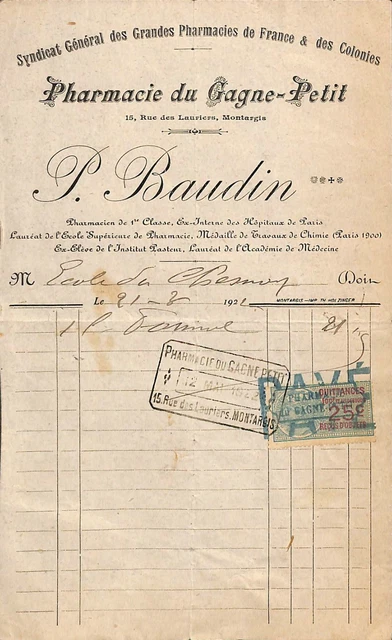 Syndicat Général des Grandes Pharmacies de France & des Colonies
Pharmacie du Gagne-Petit
15, Rue des Lauriers, Montargis
P. Baudin
Pharmacien de 1re Classe, Ex-Interne des Hôpitaux de Paris
Lauréat de l'Ecole Supérieure de Pharmacie, Médaille de Travaux de Chimie (Paris 1900)
Ex-Elève de l'Institut Pasteur, Lauréat de l'Académie de Médecine
M Ecole du Doit
Le 21-8 1921 MONTARGIS - IMP. TH. HOLZINGER
1
PHARMACIE DU GAGNE PETIT
12 MAI 1922
15, Rue des Lauriers, MONTARGIS
PAYÉ
QUITTANCES
25c
REÇUS D'OBJETS